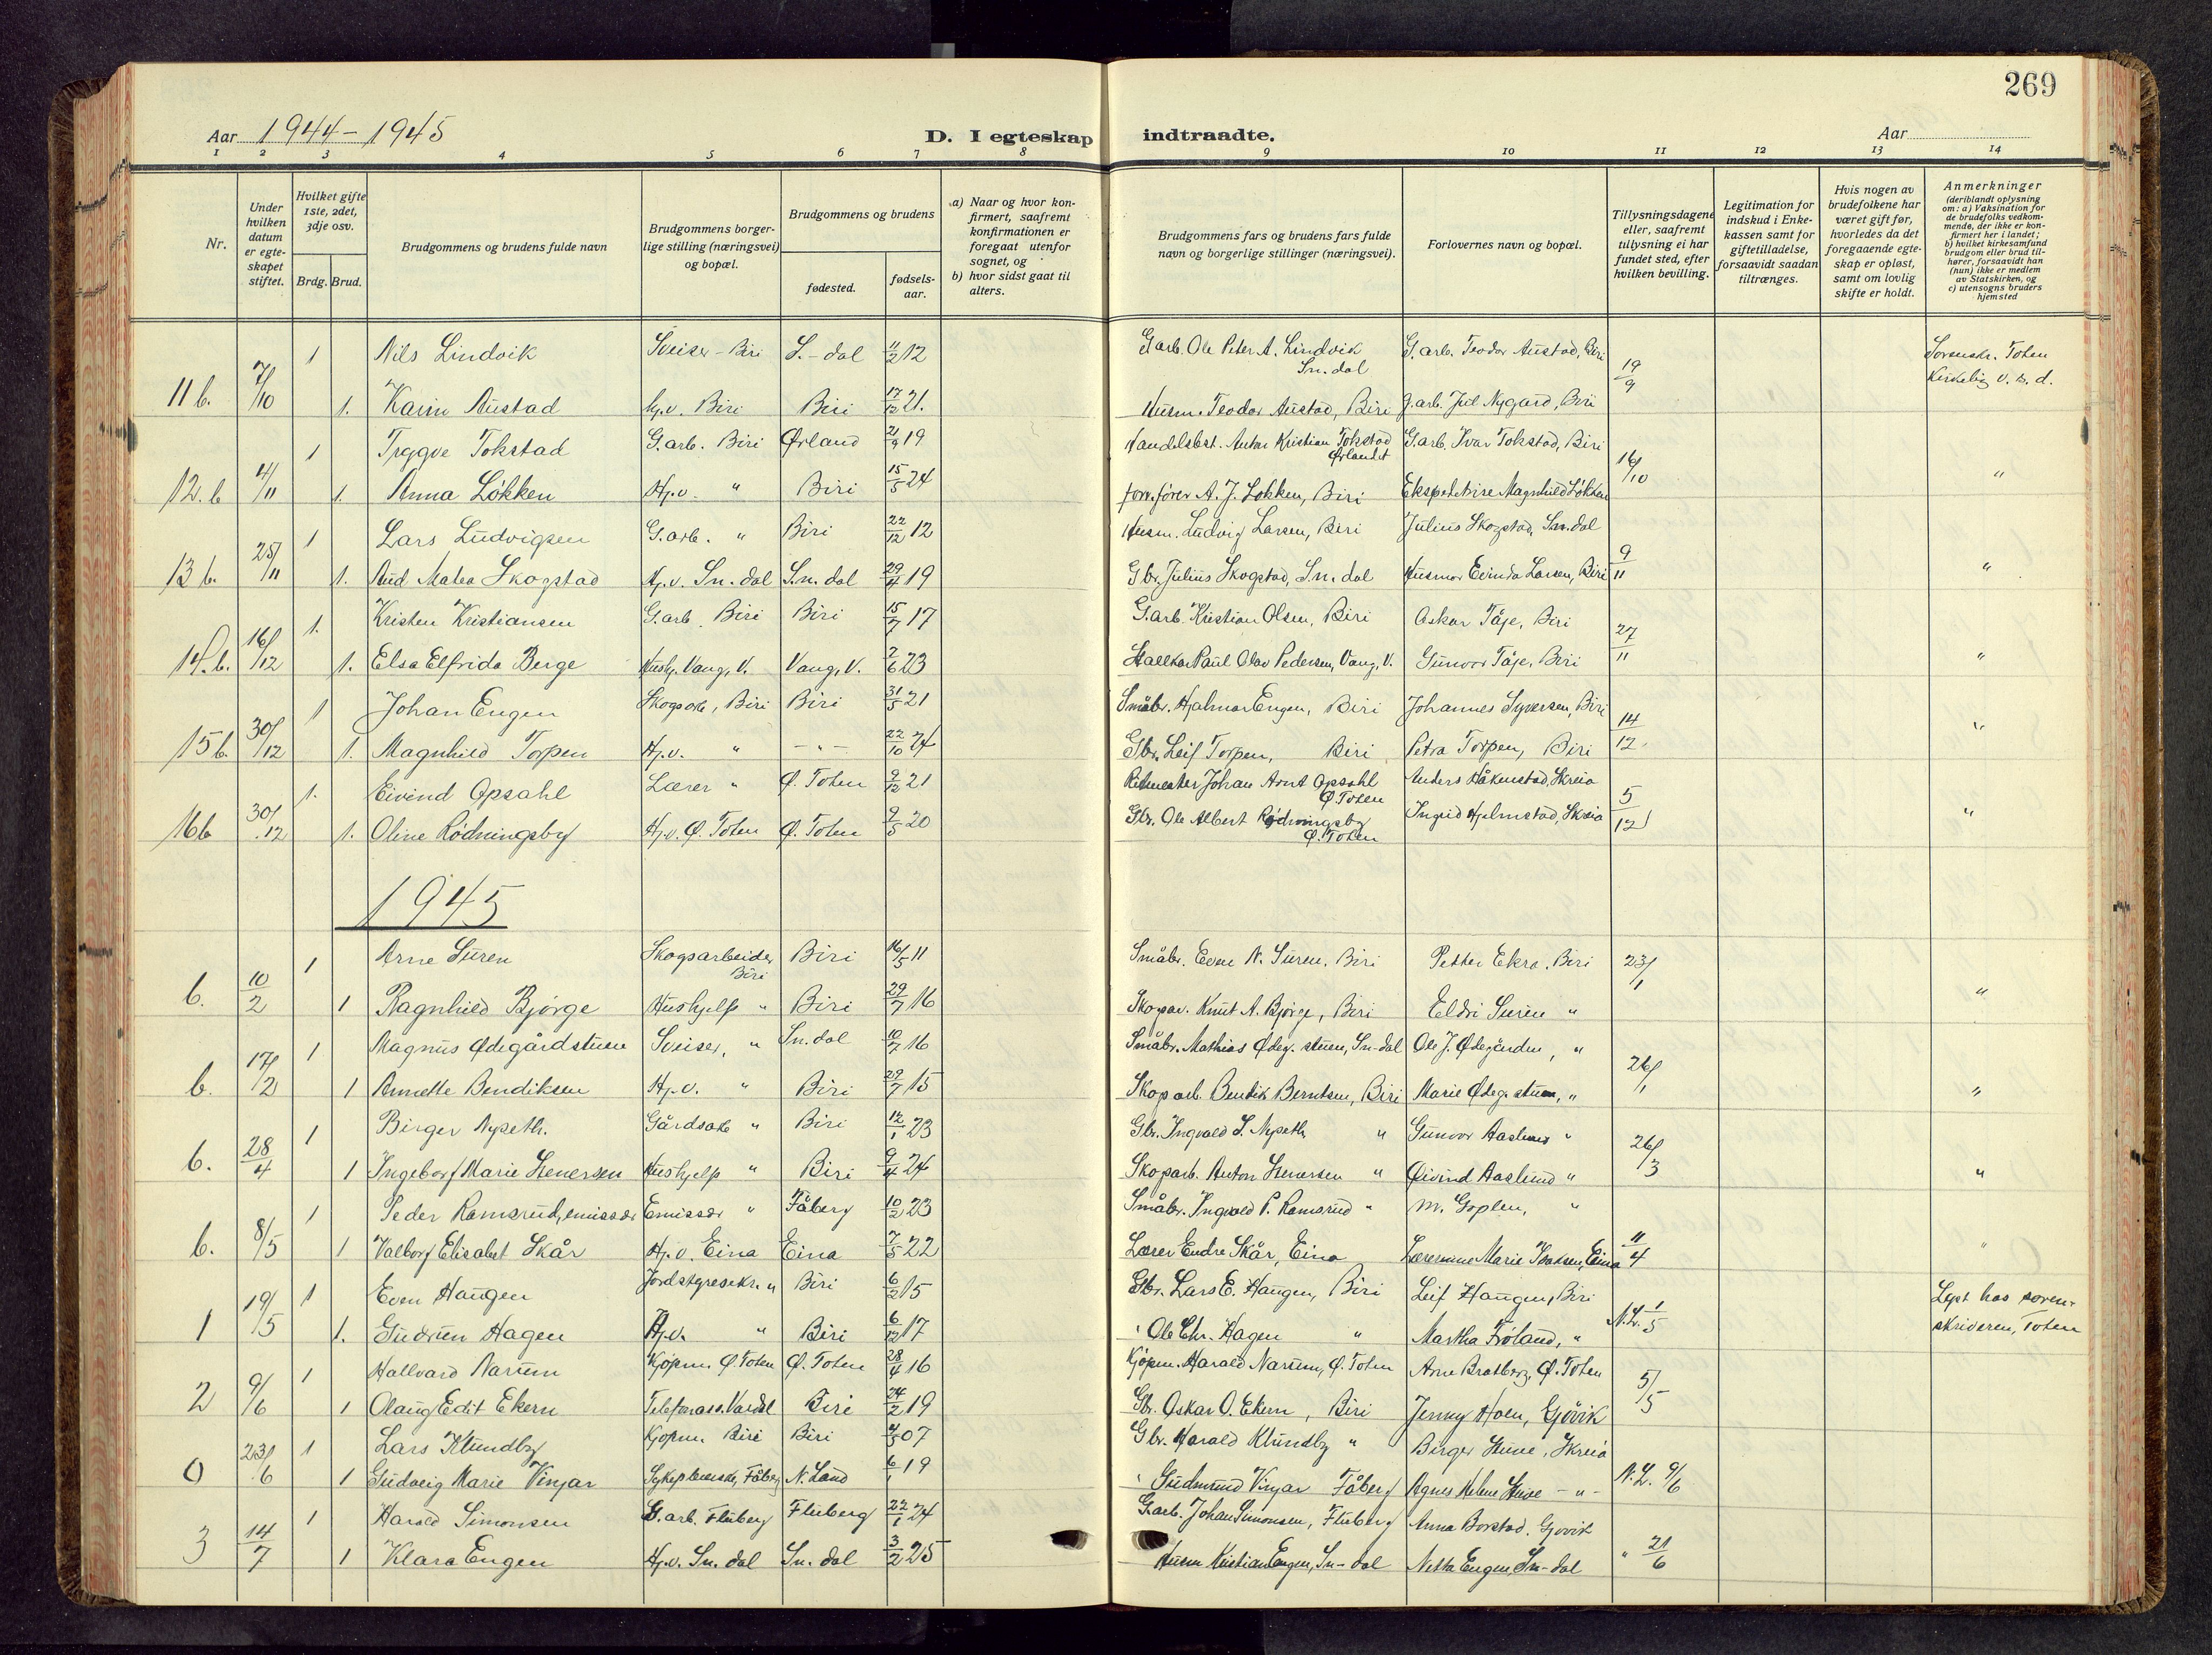 269
Aar 1944-1945
D. I egteskap indtraadte.
Aar
1 2 3 4 5 6 7 8 9 10 11 12 13 14
Nr.
Under hvilken datum er egteskapet stiftet.
Hvilket gifte 1ste, 2det, 3dje osv.
Brdg. Brud.
Brudgommens og brudens fulde navn
Brudgommens borgerlige stilling (næringsvei) og bopæl.
Brudgommens og brudens
fødested.
fødselsaar.
a) Naar og hvor konfirmert, saafremt konfirmationen er foregaat utenfor sognet, og
b) hvor sidst gaat til alters.
Brudgommens fars og brudens fars fulde navn og borgerlige stillinger (næringsvei).
Forlovernes navn og bopæl.
Tillysningsdagene eller, saafremt tillysning ei har fundet sted, efter hvilken bevilling.
Legitimation for indskud i Enkekassen samt for giftetilladelse, forsaavidt saadan tiltrænges.
Hvis nogen av brudefolkene har været gift før, hvorledes da det foregaaende egteskap er opløst, samt om lovlig skifte er holdt.
Anmerkninger (deriblandt oplysning om: a) Vaksination for de brudefolks vedkommende, der ikke er konfirmert her i landet; b) hvilket kirkesamfund brudgom eller brud tilhører, forsaavidt han (hun) ikke er medlem av Statskirken, og c) utensogns bruders hjemsted
1 Nils Lindvik Sveiser - Biri S.-dal 11/2 12 G.arb. Ole Peter A. Lindvik Sn.dal G.arb. Teodor Austad, Biri Sorenskr. Toten
11 b. 7/10 1. Karin Austad Hj.v. Biri Biri 17/12 21. Husm. Teodor Austad, Biri G.arb. Jul Nygard, Biri 19/9 Kirkelig v. s. d.
1 Trygve Tokstad G.arb. Biri Ørland 21/9 19 Handelsbest. Anton Kristian Tokstad Ørlandet G.arb. Ivar Tokstad, Biri
12. b 4/11 1. Anna Løkken Hj.v. " Biri 15/5 24 forr.fører A. J. Løkken, Biri Ekspeditrise Magnhild Løkken 16/10 "
1 Lars Ludvigsen G.arb. " Biri 22/12 12 Husm. Ludvig Larsen, Biri Julius Skogstad, Sn.dal
13 b. 25/11 1. Aud Matea Skogstad Hj.v. Sn.dal Sn.dal 29/4 19 Gbr. Julius Skogstad, Sn.dal Husmor Evinda Larsen, Biri 9/11 "
1. Kristen Kristiansen G.arb. Biri Biri 15/7 17 G.arb. Kristian Olsen, Biri Oskar Tåje, Biri
14. b. 16/12 1. Elsa Elfrida Berge Hushj. Vang, V. Vang, V. 2/6 23 Paul Olav Pedersen, Vang, V. Gunvor Tåje, Biri 27/11 "
1 Johan Engen Skogsarb, Biri Biri 31/5 21 Småbr. Hjalmar Engen, Biri Johannes Syversen, Biri
15 b. 30/12 1. Magnhild Torpen Hj.v. " - " - 22/10 24 Gbr. Leif Torpen, Biri Petra Torpen, Biri 14/12. "
1. Eivind Opsahl Lærer " Ø. Toten 9/12 21 Ritmester Johan Arnt Opsahl Ø. Toten Anders Håkenstad, Skreia
16 b 30/12 1. Oline Rødningsby Hj.v. Ø. Toten Ø. Toten 2/5 20 Gbr. Ole Albert Rødningsby Ø. Toten Ingrid Hjelmstad, Skreia 5/12 "
1945
1 Arne Suren Skogsarbeider Biri Biri 16/5 11 Småbr. Even N. Suren. Biri Petter Ekra. Biri
b. 10/2 1 Ragnhild Bjørge Hushjelp " Biri 29/7 16 Skogar. Knut A. Bjørge, Biri Eldri Suren " 23/1 "
1 Magnus Ødegårdstuen Sveiser, " Sn.dal 10/7 16 Småbr. Mathias Ødeg. stuen, Sn-dal Ole J. Ødegården, "
b. 17/2 1 Annette Bendiksen Hj.v. " Biri 29/7 15 Skogarb. Bendik Berntsen, Biri Marie Ødeg. stuen, " 26/1 "
1 Birger Nyseth. Gårdsarb " Biri 12/1 23 Gbr. Ingvald S. Nyseth " Gunvor Aaslund "
b. 28/4 1 Ingeborg Marie Stenersen Hushjelp " Biri 9/4 24 Skogarb. Anton Stenersen " Øivind Aaslund " 26/3 "
1 Peder Ramsrud, emissær Emissær " Fåberg 10/2 23 Småbr. Ingvald P. Ramsrud " M. Goplen, "
b. 8/5 1 Valborg Elisabet Skår Hj.v. Eina Eina 7/5 22 Lærer Endre Skår, Eina Lærerinne Marie Isaksen, Eina 11/4 "
1 Even Haugen Jordstyresekr. " Biri 6/2 15 Gbr. Lars E. Haugen, Biri Leif Haugen, Biri Lyst hos soren-
1 19/5 1. Gudrun Hagen Hj.v. " Biri 6/12 17 " Ole Chr. Hagen " Martha Frøland, " N.L. 1/5 skriveren, Toten
1 Hallvard Narum Kjøpm. Ø. Toten Ø. Toten 28/4 16 Kjøpm. Harald Narum, Ø. Toten Arne Bratberg, Ø. Toten
2 9/6 1 Olaug Edit Ekern Telefonass. Vardal Biri 24/2 19 Gbr. Oskar O. Ekern, Biri Jenny Hoen, Gjøvik 5/5
1 Lars Klundby Kjøpm. Biri Biri 07 Gbr. Harald Klundby " Birger Stuve, Skreia
0 23/6 1 Gudveig Marie Vinjar Sykepleierske, Fåberg N. Land 6/1 19 " Gudmund Vinjar Fåberg Agnes Helene Stuve - " - N.L. 9/6
1 Harald Simonsen G.arb. Fluberg Fluberg 22/1 24 G.arb. Johan Simonsen, Fluberg Anna Borstad. Gjøvik
3 14/7 1 Klara Engen Hj.v. Sn.dal Sn.dal 3/2 25 Husm Kristian Engen, Sn-dal Netta Engen, Sn-dal " 21/6